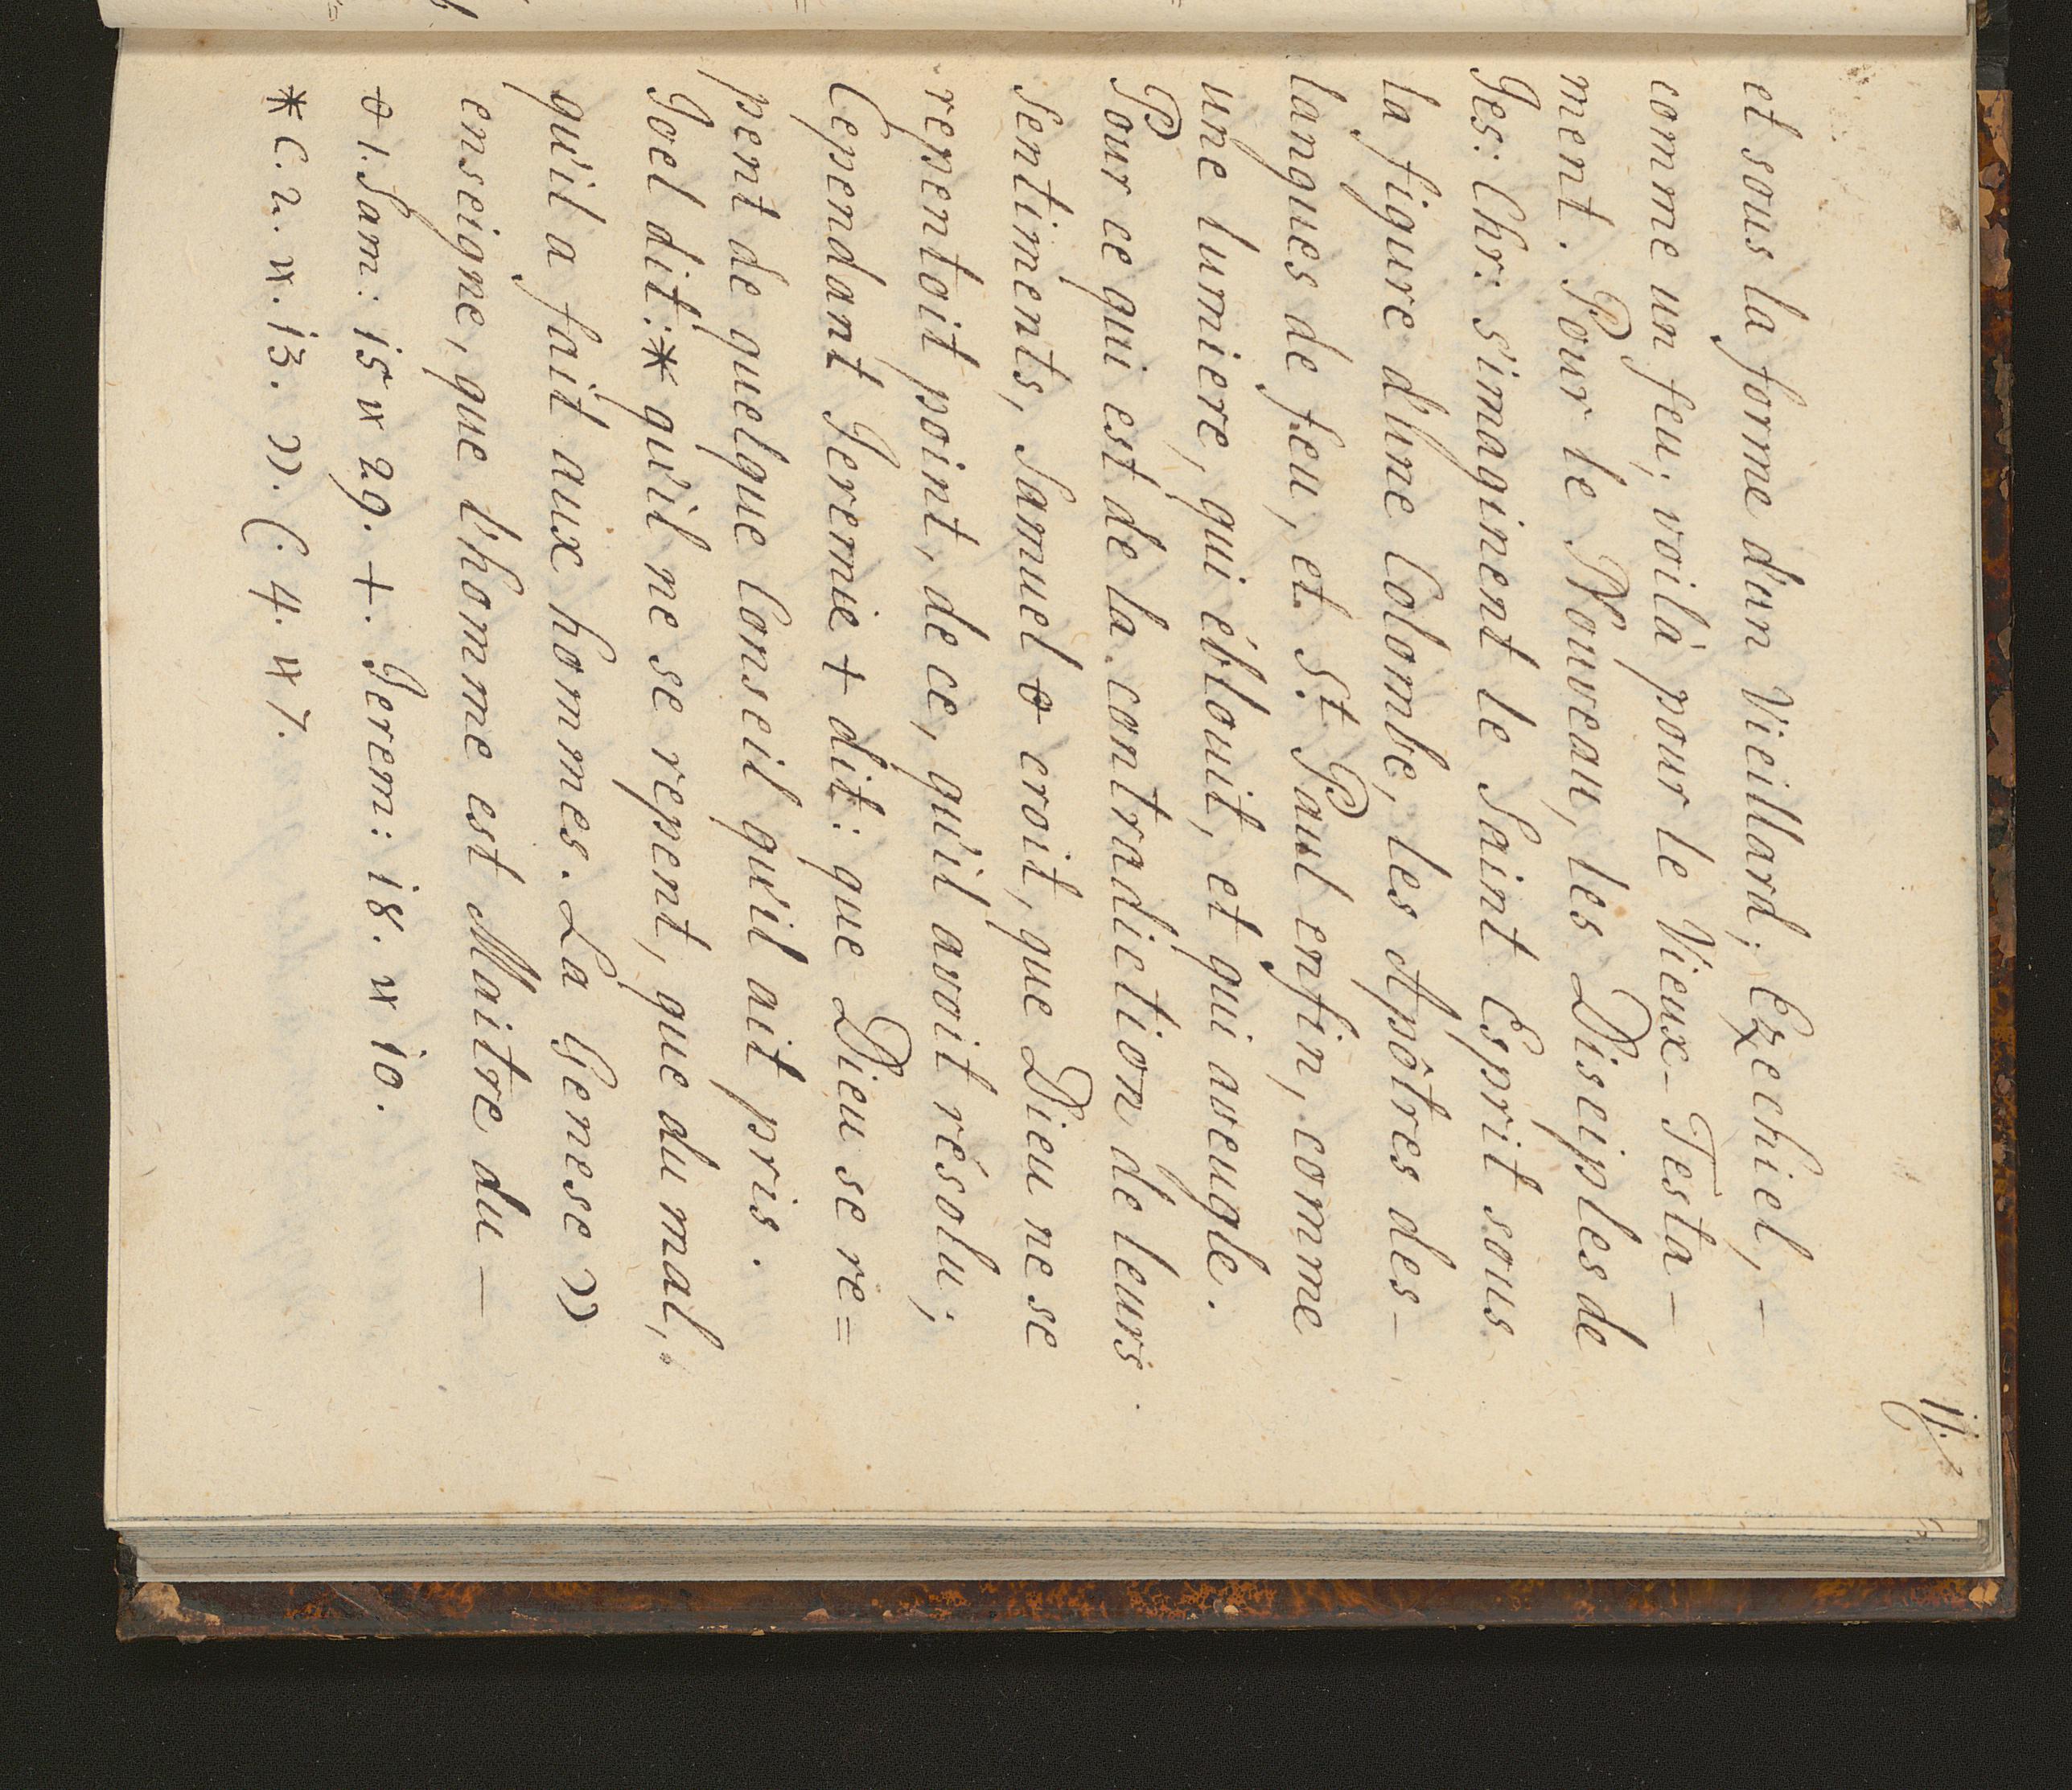 et sous la forme d'un Vieillard; Ezechiel, -
comme un feu; voilà pour le Vieux-Testa-
ment. Pour le Nouveau, les Disciples de
Jes: Chr: s'imaginent le Saint Esprit sous
la figure d'une Colombe, les Apôtres des-
langues de feu, et St Paul enfin, comme
une lumiere, qui éblouit, et qui aveugle.
Pour ce qui est de la contradiction de leurs
Sentiments, Samuel ɵ croit, que Dieu ne se
repentoit point, de ce, qu'il avoit résolu;
Cependant Jeremie + dit: que Dieu se re=
pent de quelque Conseil qu'il ait pris.
Joel dit: * qu'il ne se repent, que du mal,
qu'il a fait aux hommes. La Genese ))
enseigne, que l'homme est Maitre du -
ɵ 1. Sam: 15 v 29. +. Jerem: 18. v 10.
* C. 2. v. 13. )). C. 4. v 7.